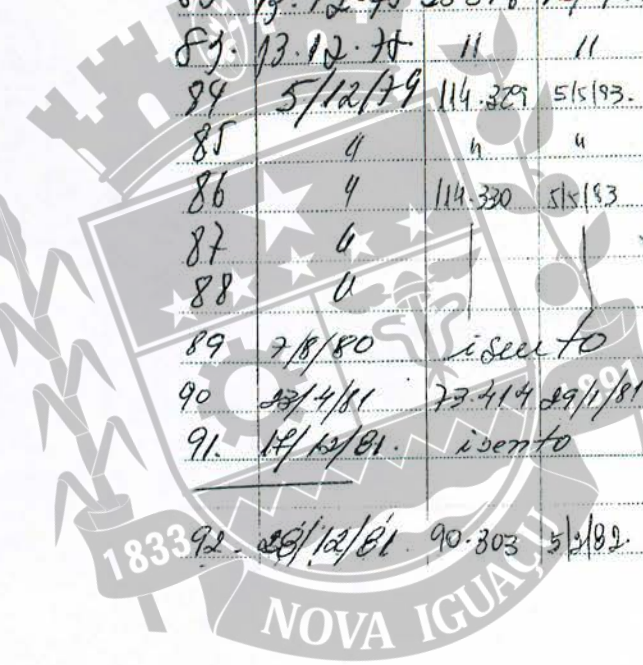 83. 13.12.78 " "
84 5/12/79 114.329 5/5/83.
85 " " "
86 " 114.330 5/5/83
87 "
88 "
89 7/8/80 isento
90 23/4/81 73.414 29/1/81
91. 17/12/81. isento
92 - 28/12/81. 90.303 5/2/82.
1833
1891
NOVA IGUAÇU